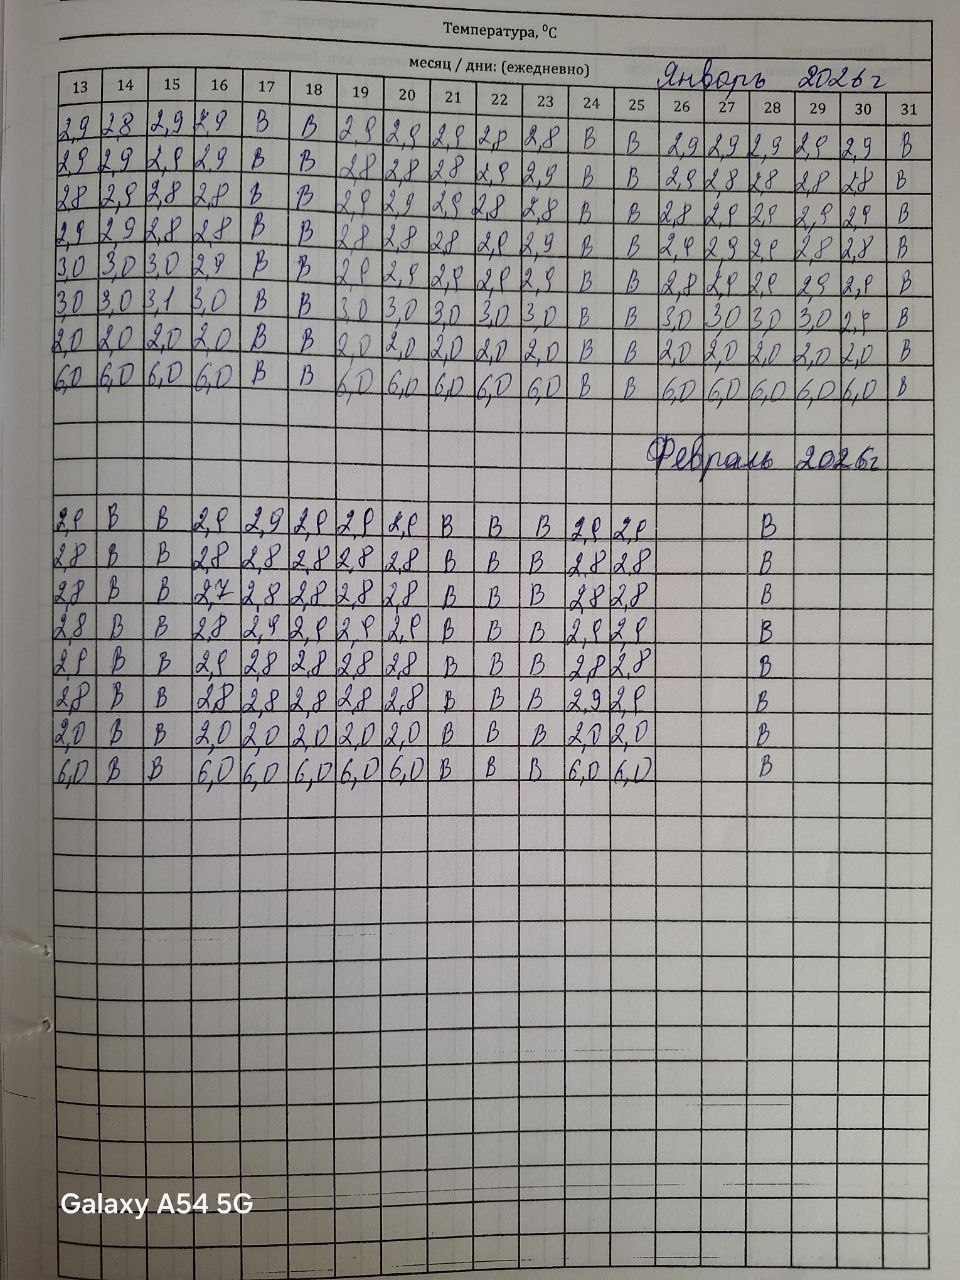 Температура, ⁰С
месяц / дни: (ежедневно) Январь 2026г
13 14 15 16 17 18 19 20 21 22 23 24 25 26 27 28 29 30 31
2,9 2,8 2,9 2,9 В В 2,9 2,9 2,9 2,8 2,8 В В 2,9 2,9 2,9 2,9 2,9 В
2,9 2,9 2,9 2,9 В В 2,8 2,8 2,8 2,9 2,9 В В 2,9 2,8 2,8 2,8 2,8 В
2,8 2,9 2,8 2,8 В В 2,9 2,9 2,9 2,8 2,8 В В 2,8 2,9 2,9 2,9 2,9 В
2,9 2,9 2,8 2,8 В В 2,8 2,8 2,8 2,9 2,9 В В 2,9 2,9 2,9 2,8 2,8 В
3,0 3,0 3,0 2,9 В В 2,9 2,9 2,9 2,9 2,9 В В 2,8 2,9 2,9 2,9 2,9 В
3,0 3,0 3,1 3,0 В В 3,0 3,0 3,0 3,0 3,0 В В 3,0 3,0 3,0 3,0 2,9 В
2,0 2,0 2,0 2,0 В В 2,0 2,0 2,0 2,0 2,0 В В 2,0 2,0 2,0 2,0 2,0 В
6,0 6,0 6,0 6,0 В В 6,0 6,0 6,0 6,0 6,0 В В 6,0 6,0 6,0 6,0 6,0 В
Февраль 2026г
2,9 В В 2,9 2,9 2,9 2,9 2,9 В В В 2,9 2,9 В
2,8 В В 2,8 2,8 2,8 2,8 2,8 В В В 2,8 2,8 В
2,8 В В 2,7 2,8 2,8 2,8 2,8 В В В 2,8 2,8 В
2,8 В В 2,8 2,9 2,9 2,9 2,9 В В В 2,9 2,9 В
2,9 В В 2,9 2,8 2,8 2,8 2,8 В В В 2,8 2,8 В
2,8 В В 2,8 2,8 2,8 2,8 2,8 В В В 2,9 2,9 В
2,0 В В 2,0 2,0 2,0 2,0 2,0 В В В 2,0 2,0 В
6,0 В В 6,0 6,0 6,0 6,0 6,0 В В В 6,0 6,0 В
Galaxy A54 5G